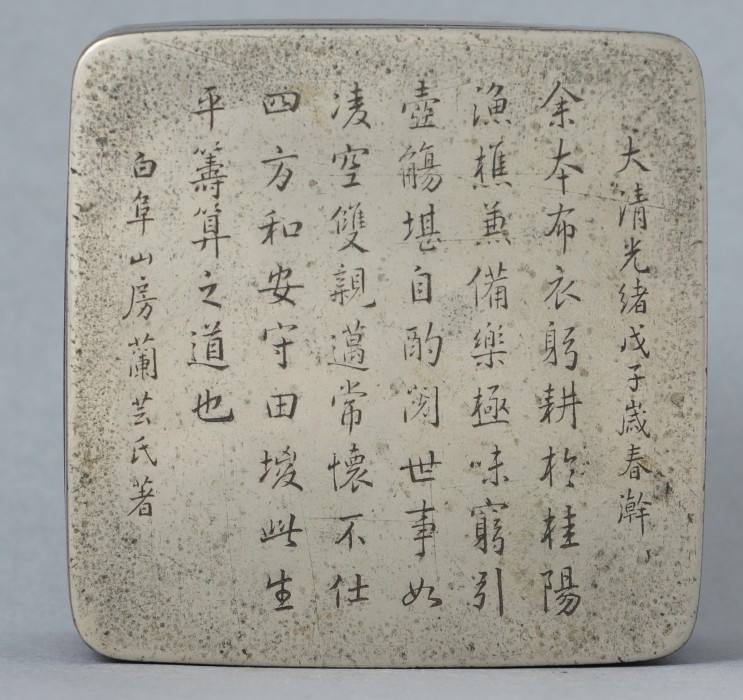 大清光緒戊子歲春澣
余本布衣躬耕於桂陽
漁樵兼備樂極味窮引
壺觴堪自酌閱世事如
凌空雙親邁常懷不仕
四方和安守田墢此生
平籌算之道也
白阜山房蘭芸氏著